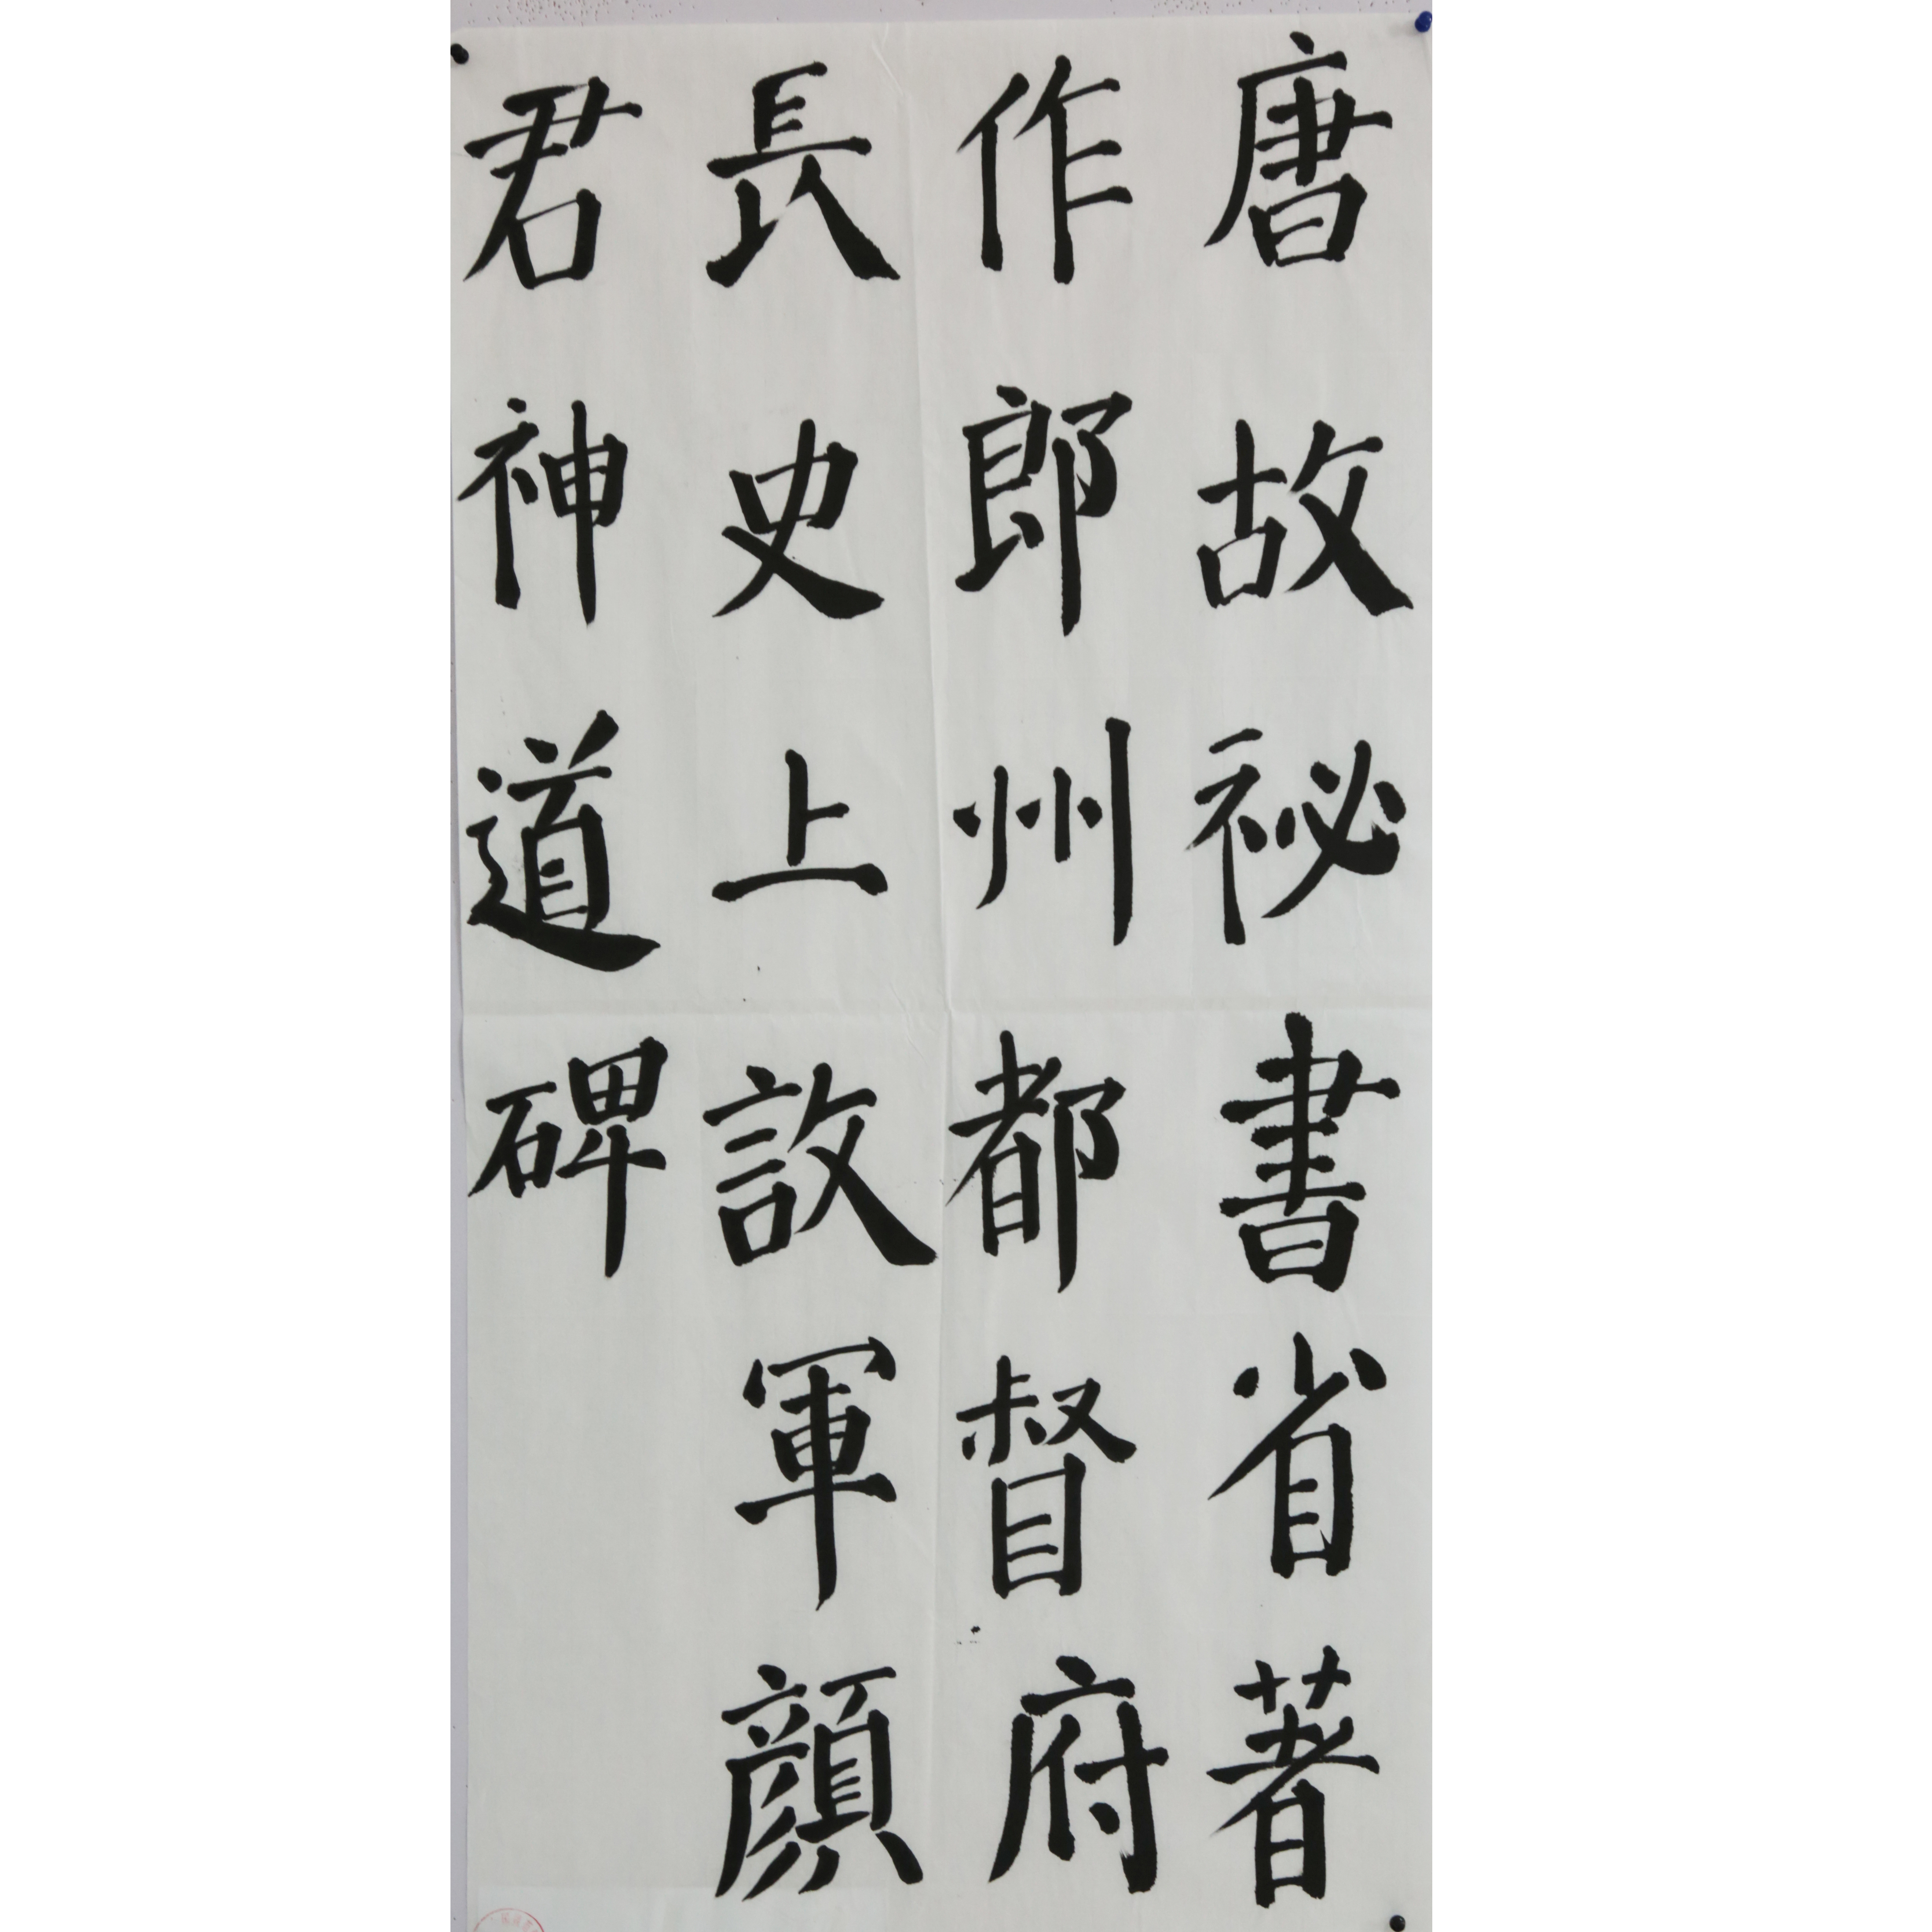 唐故祕書省著
作郎州都督府
長史上軍顏
君神道碑